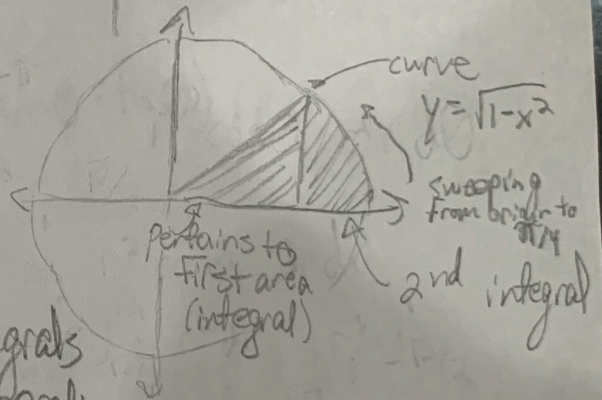 curve
y = √1-x²
sweeping
from origin to
π/4
pertains to
first area
(integral)
2nd integral
egrals